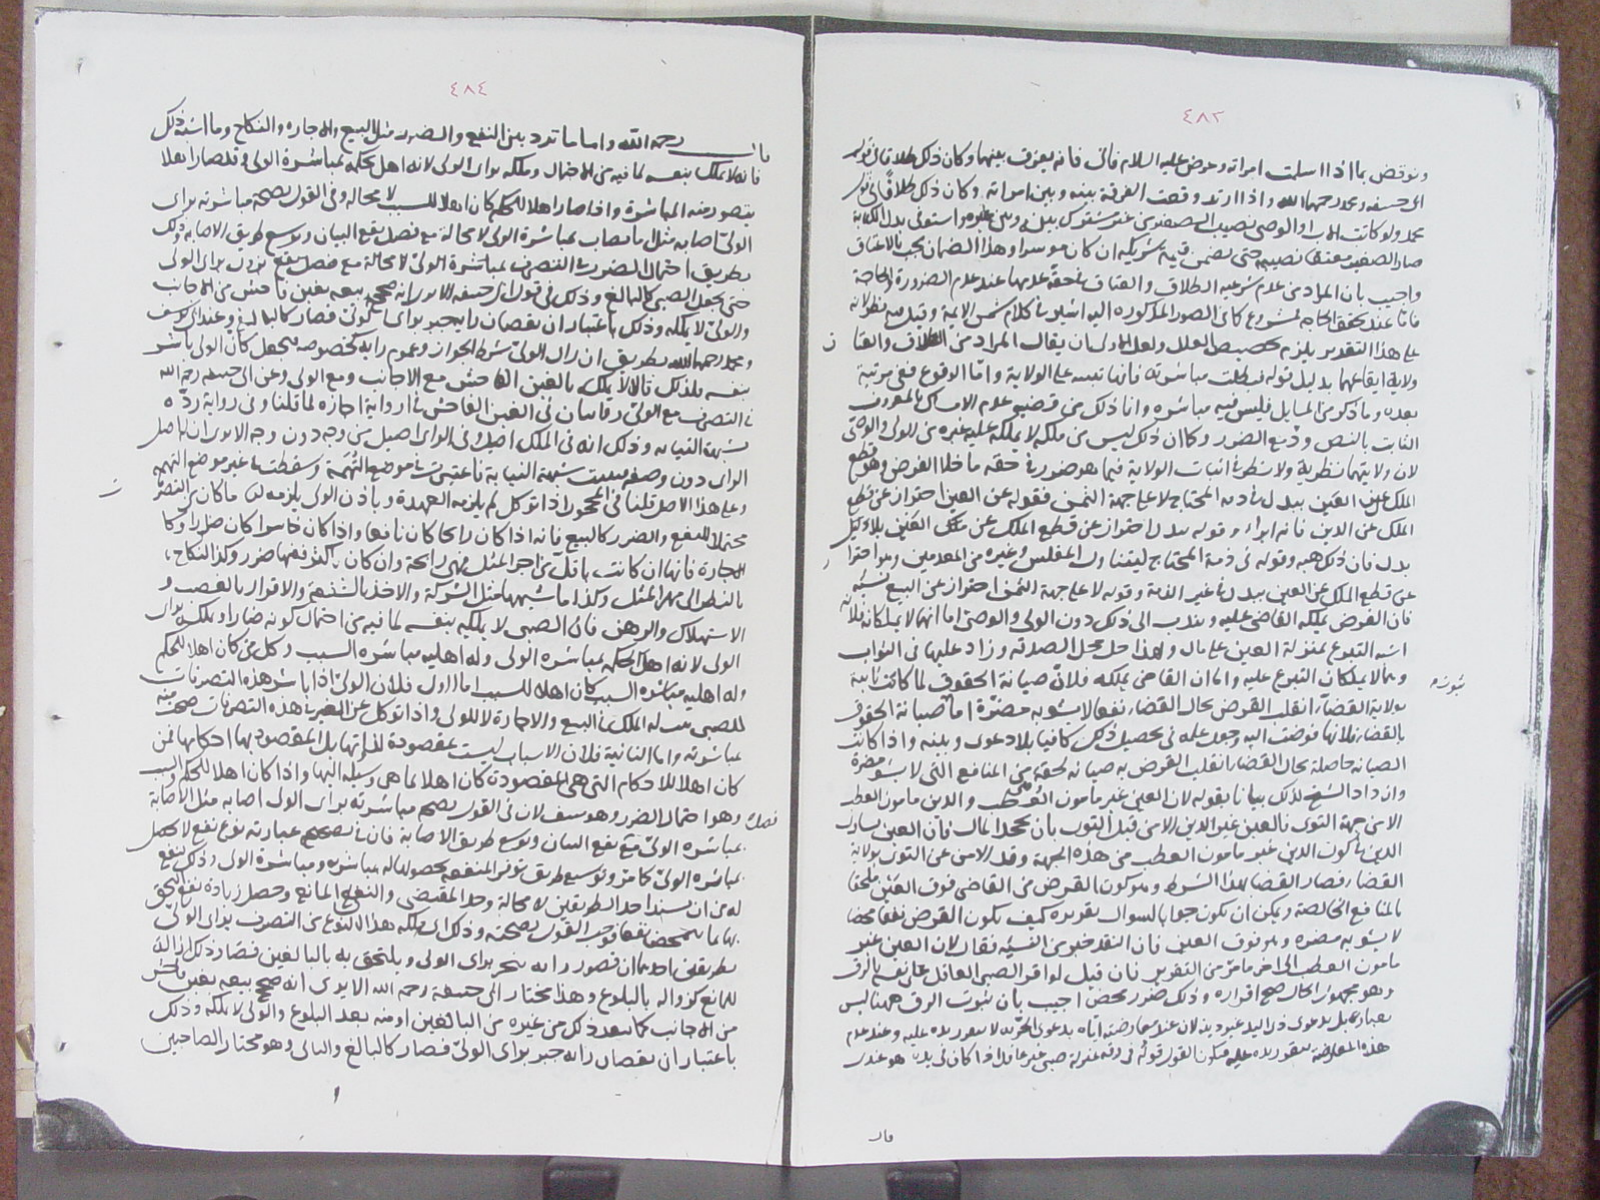 ٤٨٣
ونوقض بما اذا اسلمت امراته وعرض عليه السلام فابى فانه يفرق بينهما وكان ذلك طلاقا فى قول
ابى حنيفه ومحمد رحمهما الله واذا ارتد وقعت الفرقة بينه وبين امراته وكان ذلك طلاقا فى قول
محمد ولو كاتب الاب او الوصى نصيب الصغير من عبد مشترك بينه وبين غيره واستوفى بدل الكتابة
صار الصغير معتقا نصيبه حتى يضمن قيمة شريكه ان كان موسرا وهذا الضمان يجب بالاعتاق
واجيب بان المراد من عدم شرعيه الطلاق والعتاق فى حقه عدمها عند عدم الضرورة والحاجة
فاما عند تحقق الحاجه لمشروع كما فى الصور المذكوره اليه اشير فى كلام شمس الايمة وقيل فيه نظر لانه
على هذا التقدير يلزم تخصيص العلل ولعل الاولى ان يقال المراد من الطلاق والعتا ق
ولاية ايقاعهما بدليل قوله فبطلت مباشرته فانها تبتنى على الولاية واما الوقوع ففى مرتبة
بعده وما ذكر من المسايل فليس فيه مباشره وانما ذلك من قضيه عدم الامساك بالمعروف
الثابت بالنص ودفع الضرر وكان ذلك ليس من ملكه لا يملكه عليه غيره من الولى والوصى
لان ولايتهما نظرية ولا نظر فى اثبات الولاية فيما هو ضرر فى حقه ما خلا القرض وهو قطع
الملك عن العين ببدل فى ذمة المحتاج لا على جهة الثمن فقوله عن العين احتراز عن قطع
الملك عن الدين فانه ابراء وقوله ببدل احتراز عن قطع الملك عن العين بلا
بدل فان ذلك هبه وقوله فى ذمة المحتاج ليتناول المفلس وغيره من المعدمين وهو احترا ز
عن قطع الملك عن العين ببدل فى غير الذمة وقوله لا على جهة الثمن احتراز عن البيع نسيئه
فان القرض يملكه القاضى عليه ويندب الى ذلك دون الولى والوصى اما انهما لا يملكانه فلانه
اشبه التبرع بمنزلة العين على مال ولهذا حل محل الصدقه وزاد عليها فى الثواب
وهما لا يملكان التبرع عليه واما ان القاضى يملكه فلان صيانة الحقوق لما كانت ثابتة
ثبوته
بولاية القضآء انقلب القرض بحال القضاء نفعا لا يشوبه مضرة اما صيانة الحقوق
بالقضاء فلانها فوضت اليه وجعل علمه فى تحصيل ذلك كافيا بلا دعوى وبينه واذا كانت
الصيانه حاصلة بحال القضاء انقلب القرض به صيانه لحقه من المنافع التى لا يشوبه مضرة
وازداد الشيخ لذلك بيانا بقوله لان العين غير مامون العطب والدين مامون العطب
الا من جهة التوى فالعين غير الدين الا من قبل التوى بان يجحد المال فان العين
الدين فى كون الدين غير مامون العطب من هذه الجهة وقد الامن عن التوى بولاية
القضاء فصار القضا بهذا الشرط وهو كون القرض من القاضى فوق العين ملحقا
بالمنافع الخالصة ويمكن ان يكون جوابا لسوال تقديره كيف يكون القرض نفعا محضا
لا يشوبه مضره وهو فوق العين فان النقد خير من النسيئه فقال لان العين غير
مامون العطب الى اخر ما مر من التقرير فان قيل لو اقر الصبى العاقل على نفسه بالرق
وهو مجهول الحال صح اقراره وذلك ضرر محض اجيب بان ثبوت الرق ههنا ليس
بعبارته بل بدعوى ذى اليد عبوديته لان عند معارضته اياه بدعوى الحريه لا يتقرر يده عليه وعند عدم
هذه المعارضة يتقرر يده عليه فيكون القول قوله فى رقه بمنزلة صبى غير عاقل اذا كان فى يده هو عندى
قال
٤٨٤
قال رحمه الله واما ما تردد بين النفع والضرر مثل البيع والاجاره والنكاح وما اشبه ذلك
فانه لا يملك بنفسه لما فيه من الاحتمال ويملكه براى الولى لانه اهل لحكمه بمباشرة الولى وقد صار اهلا
بتصور منه المباشرة واذا صار اهلا للحكم كان اهلا للسبب لا محاله وفى القول بصحة مباشرته براى
الولى اصابة مثل ما يصاب بمباشرة الولى لا محالة مع فضل نفع البيان وتوسع طريق الاصابه وذلك
بطريق احتمال الضرر فى التصرف بمباشرة الولى لا محالة مع فضل نفع يزول براى الولى
حتى يجعل الصبى كالبالغ وذلك فى قول ابى حنيفه الا يرى انه صحح بيعه بغبن فاحش من الاجانب
والولى لا يملكه وذلك باعتبار ان نقصان رايه جبر براى الولى فصار كالبالغ وعند ابى يوسف
ومحمد رحمهما الله بطريق ان راى الولى شرط الجواز وعموم رايه كخصوصه فجعل كان الولى باشر
بنفسه فلذلك قالا لا يملك بالغبن الفاحش مع الاجانب ومع الولى وعن ابى حنيفه رحمه الله
فى التصرف مع الولى روايتان فى الغبن الفاحش فى رواية اجازه لما قلنا وفى رواية رده
بشبهة النيابه وذلك انه فى الملك اصيل وفى الراى اصيل من وجه دون وجه الا يرى ان له اصل
الراى دون وصفه فثبتت شبهة النيابة فاعتبرت فى موضع التهمة وسقطت فى غير موضع التهمه
وعلى هذا الاصل قلنا فى المحجور اذا توكل لم يلزمه العهدة وباذن الولى يلزمه اما ما كان من التصر ف
محتملا للنفع والضرر كالبيع فانه اذا كان رابحا كان نافعا واذا كان خاسرا كان ضررا وكا
لاجارة فانها ان كانت باقل من اجر المثل فهى رابحة وان كان باكثر ففيها ضرر وكذا النكاح
بالنظر الى مهر المثل وكذا ما شبهها مثل الشركة والاخذ بالشفعة والاقرار بالغصب و
الاستهلاك والرهن فان الصبى لا يملكه بنفسه لما فيه من احتمال كونه ضارا ويملكه براى
الولى لانه اهل لحكمه بمباشره الولى وله اهليه مباشره السبب وكل من كان اهلا للحكم
وله اهليه مباشره السبب كان اهلا للسبب اما الاول فلان الولى اذا باشر هذه التصرفات
للصبى ثبت له الملك فى البيع والاجارة لا للولى واذا توكل عن الغير فى هذه التصرفات صحت منه
مباشرته واما الثانية فلان الاسباب ليست بمقصودة لذاتها بل المقصود بها احكامها فمن
كان اهلا للاحكام التى هى المقصودة كان اهلا لما هى وسيلة اليها واذا كان اهلا للحكم والسبب
وهو احتمال الضرر وهو منتف لان فى القول بصحة مباشرته براى الولى اصابه مثل الاصابة
فصل
بمباشره الولى مع نفع البيان وتوسع طريق الاصابة فان فى تصحيح عبارته نوع نفع لا يحصل
بمباشره الولى كما مر وتوسيع طريق توفر المنفعه بحصولها له بمباشرته ومباشرة الولى وذلك نفع
له من ان ينسد احد الطريقين لا محالة وجد المقتضى وانتفى المانع وحصل زيادة نفع التحق
بها ما يتمحض نفعا فوجب القول بصحته وذلك اى تملكه هذا النوع من التصرف براى الولى
بطريقين احدهما ان قصور رايه ينجبر براى الولى ويلتحق به بالبالغين فصار ذلك ازالة
للمانع كزواله بالبلوغ وهذا مختار ابى حنيفة رحمه الله الا يرى انه صحح بيعه بغبن فاحش
من الاجانب كما نفذ ذلك من غيره من البالغين او منه بعد البلوغ والولى لا يملكه وذلك
باعتبار ان نقصان رايه جبر براى الولى فصار كالبالغ والثانى وهو مختار الصاحبين